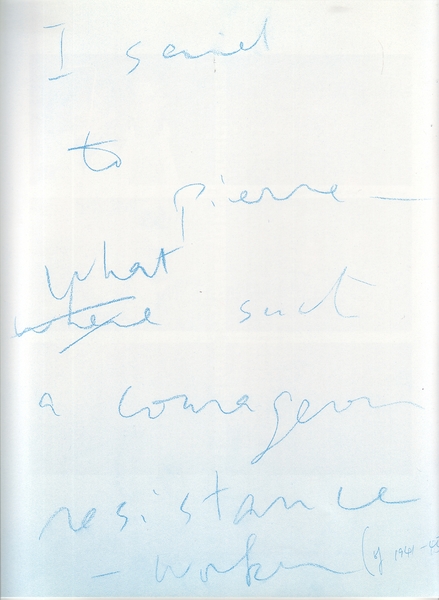 I said
to
Pierre —
what
where such
a courageous
resistance
- worker (of 1941-45